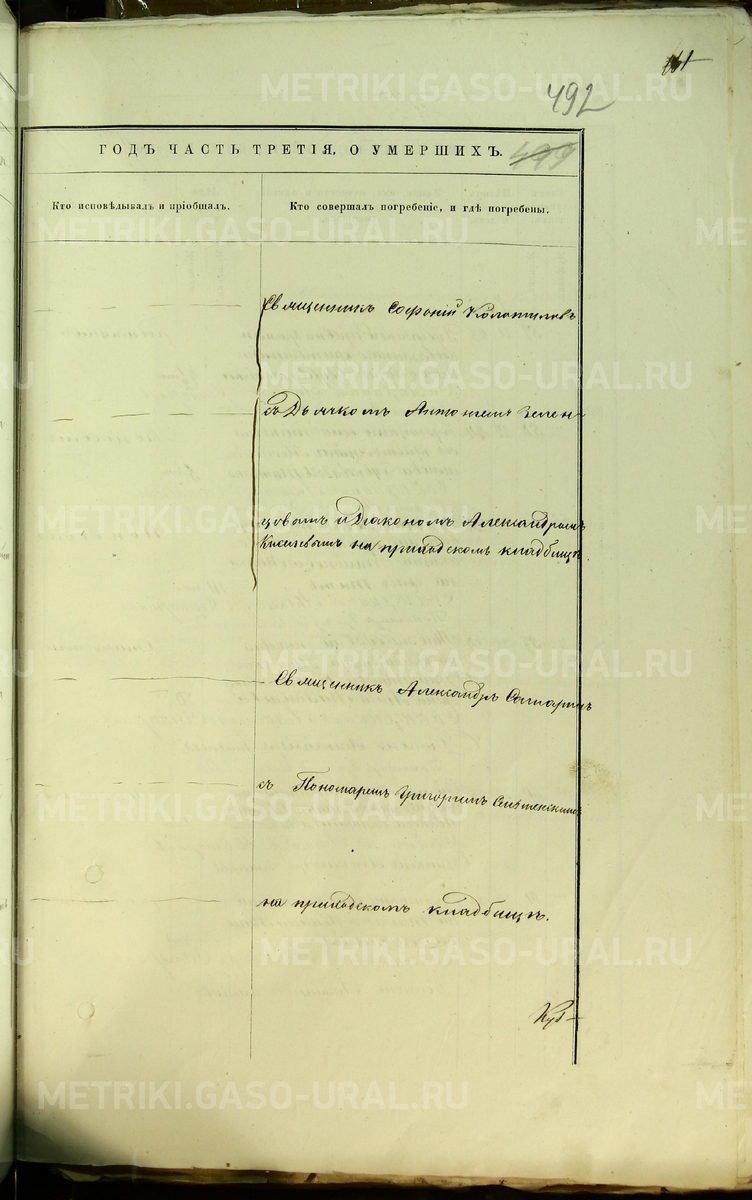 492
ГОДЪ ЧАСТЬ ТРЕТІЯ, О УМЕРШИХЪ. 499
Кто исповѣдывалъ и пріобщалъ.
Кто совершалъ погребеніе, и гдѣ погребены.
Священникъ Софоній Колотиловъ
съ Дьячкомъ Антоніемъ Зелен-
цовымъ и Діакономъ Александромъ
на приходскомъ кладбищѣ
Священникъ Александръ
съ Пономаремъ Григоріемъ
на приходскомъ кладбищѣ.
METRIKI.GASO-URAL.RU